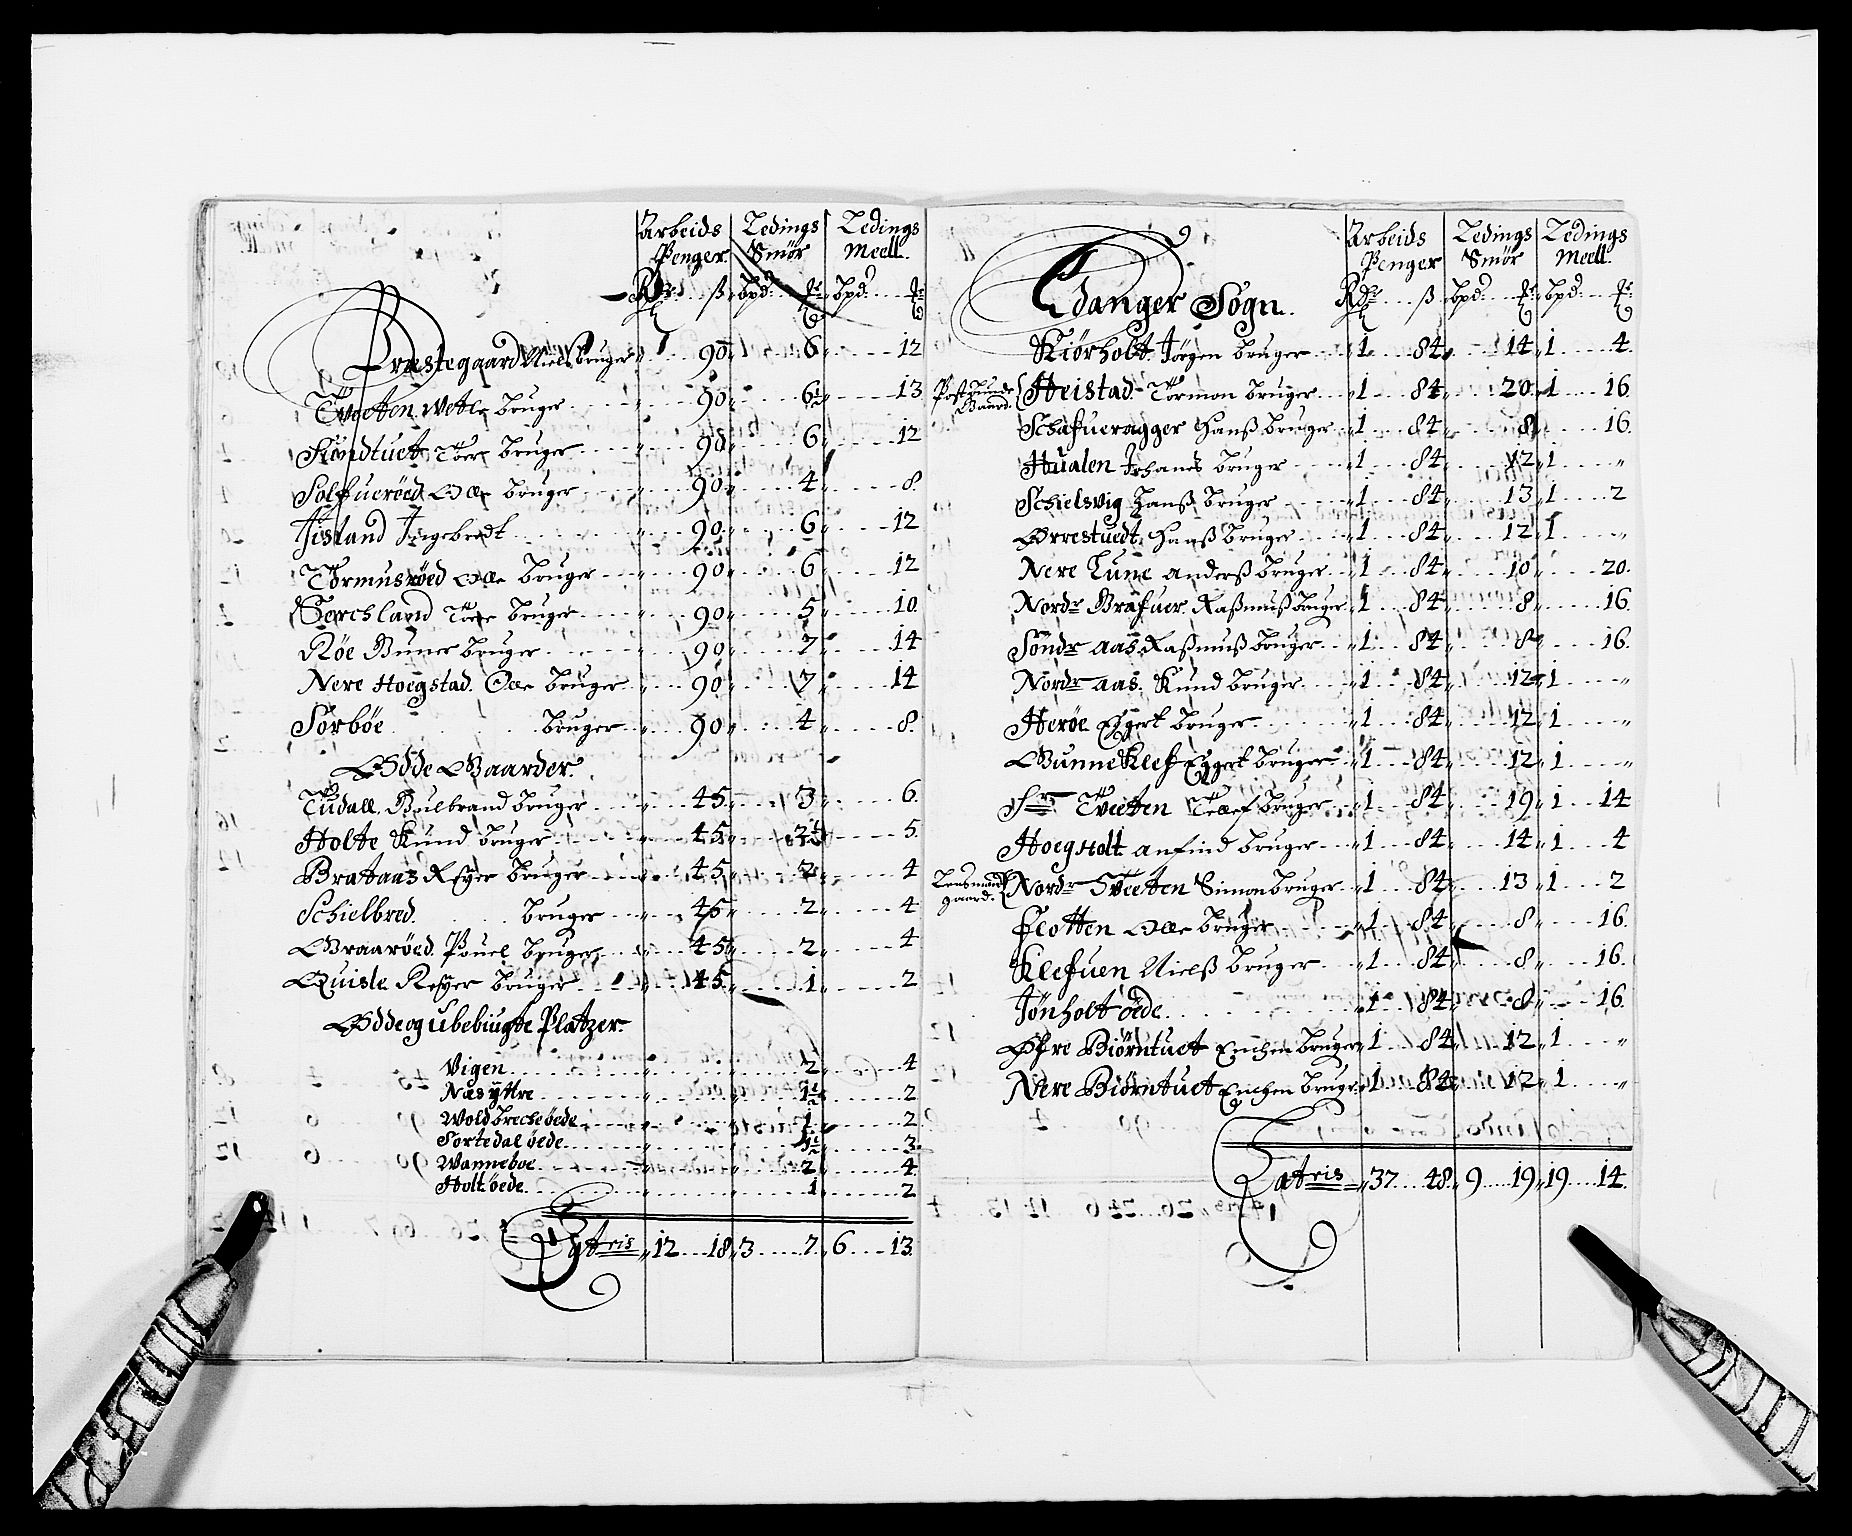 Arbeids Penger Ledings Smör Ledings Meell
Rdr ß bpd bpd
Præstegaard Niels bruger 90 6 12
Tveeten Wetle bruger 90 6½ 13
Kundtuet Toer bruger 90 6 12
Solfueröed Olle bruger 90 4 8
Jisland Jngebredt 90 6 12
Tormusröed Olle bruger 90 6 12
Torchsland Tore bruger 90 5 10
Röe Guner bruger 90 7 14
Nere Hoegstad Olle bruger 90 7 14
Sörböe bruger 90 4 8
Ödde Gaarder
Tudall Gulbrand bruger 45 3 6
Holte Kund bruger 45 2½ 5
Brataas Reyer bruger 45 2 4
Schielbred bruger 45 2 4
Graaröed Pouel bruger 45 2 4
Quisle Reyer bruger 45 1 2
Ödde og ubebiugte Platzer
Vigen 2 4
Næsyttre 1½ 2
Woldbrecheöede 1 2
Sortedal öede 1½ 3
Wanneboe 2 4
Holt öede 1 2
Latris 12 18 3 7 6 13
Arbeids Penger Ledings Smör Ledings Meell
Edanger Sogn Rdr ß bpd bpd
Kiörholt Jörgen bruger 1 84 14 1 4
Heistad Tormon bruger 1 84 20 1 16
Schafueragger Hanß bruger 1 84 8 16
Hualen Johanes bruger 1 84 12 1 "
Schielsvig Hanß bruger 1 84 13 1 2
Örrestuedt Hanß bruger 1 84 12 1 "
Nere Lune Anderß bruger 1 84 10 20
Nordr Grafuer Raßmuß bruger 1 84 8 16
Söndr Aas Raßmuß bruger 1 84 8 16
Nordr Aas Kund bruger 1 84 12 1 "
Heröe Eggert bruger 1 84 12 1 "
Gunneklef Eggert bruger 1 84 12 1 "
Tveeten bruger 1 84 19 1 14
Hoegholt Anfind bruger 1 84 14 1 4
Lensmands gaard Nordr Tveeten Simon bruger 1 84 13 1 2
Flotten Olle bruger 1 84 8 16
Klefuen Nielß bruger 1 84 8 16
Jönholt öede 1 84 8 16
Öfre Biörntuet Enchen bruger 1 84 12 1 "
Nere Biörntuet Enchen bruger 1 84 12 1 "
Latris 37 48 9 19 19 14